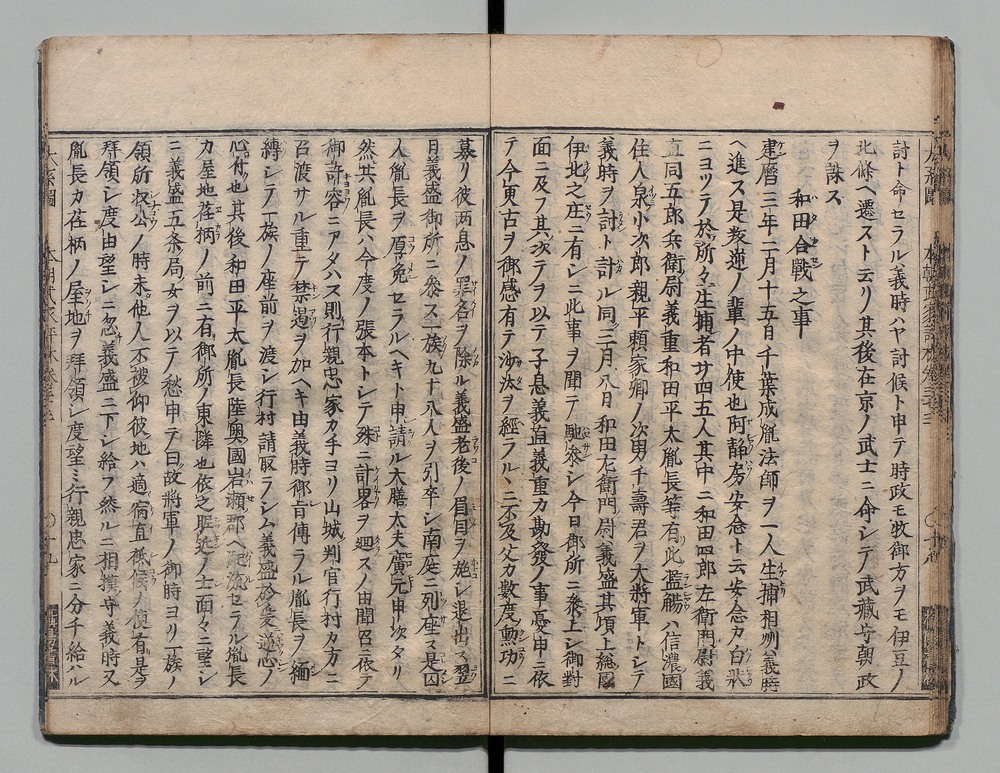 討ト命セラル義時ハヤ討候ト申テ時政モ牧御方ヲモ伊豆ノ
北條ヘ遷スト云リ其後在京ノ武士ニ命シテ武藏守朝政
ヲ誅ス
和田合戰之事
建曆三年二月十五日千葉成胤法師ヲ一人生捕相州義時
ヘ進ス是叛逆ノ輩ノ中使也阿靜房安念ト云安念カ白狀
ニヨツテ於所々生捕者廿四五人其中ニ和田四郎左衛門尉義
直同五郎兵衛尉義重和田平太胤長等有此濫觴ハ信濃國
住人泉小次郎親平賴家卿ノ次男千壽君ヲ大將軍トシテ
義時ヲ討ト計ル同三月八日和田左衛門尉義盛其頃上總國
伊北之庄ニ有シニ此事ヲ聞テ馳參シ今日御所ニ參上シ御對
面ニ及フ其次テヲ以テ子息義直義重カ勘發ノ事憂申ニ依
テ今更古ヲ御感有テ沙汰ヲ經ラルヽニ不及父カ數度勳功ニ
募リ彼両息ノ罪名ヲ除ル義盛老後ノ眉目ヲ施シ退出ス翌
日義盛御所ニ參ス一族九十八人ヲ引卒シ南庭ニ列座ス是囚
人胤長ヲ厚免セラルヘキト申請ル大膳大夫廣元申次タリ
然共胤長ハ今度ノ張本トシテ殊ニ計畧ヲ廻スノ由聞召ニ依テ
御許容ニアタハス則行親忠家カ手ヨリ山城判官行村カ方ニ
召渡サル重テ禁遏ヲ加ヘキ由義時御旨傳ラル胤長ヲ緬
縛シテ一族ノ座前ヲ渡シ行村請取ラシム義盛於爰逆心ノ
心有也其後和田平太胤長陸奧國岩瀬郡ヘ配流セラル胤長
カ屋地荏柄ノ前ニ有御所ノ東隣也依之昵近ノ士面々ニ望シ
ニ義盛五条局女ヲ以テ愁申テ曰故將軍ノ御時ヨリ一族ノ
領所收公ノ時未他人不被仰彼地ハ適宿直祗候ノ便有是ヲ
拜領シ度由望シニ忽義盛ニ下シ給フ然ルニ相摸守義時又
胤長カ荏柄ノ屋地ヲ拜領シ度望ミ行親忠家ニ分千給ハル